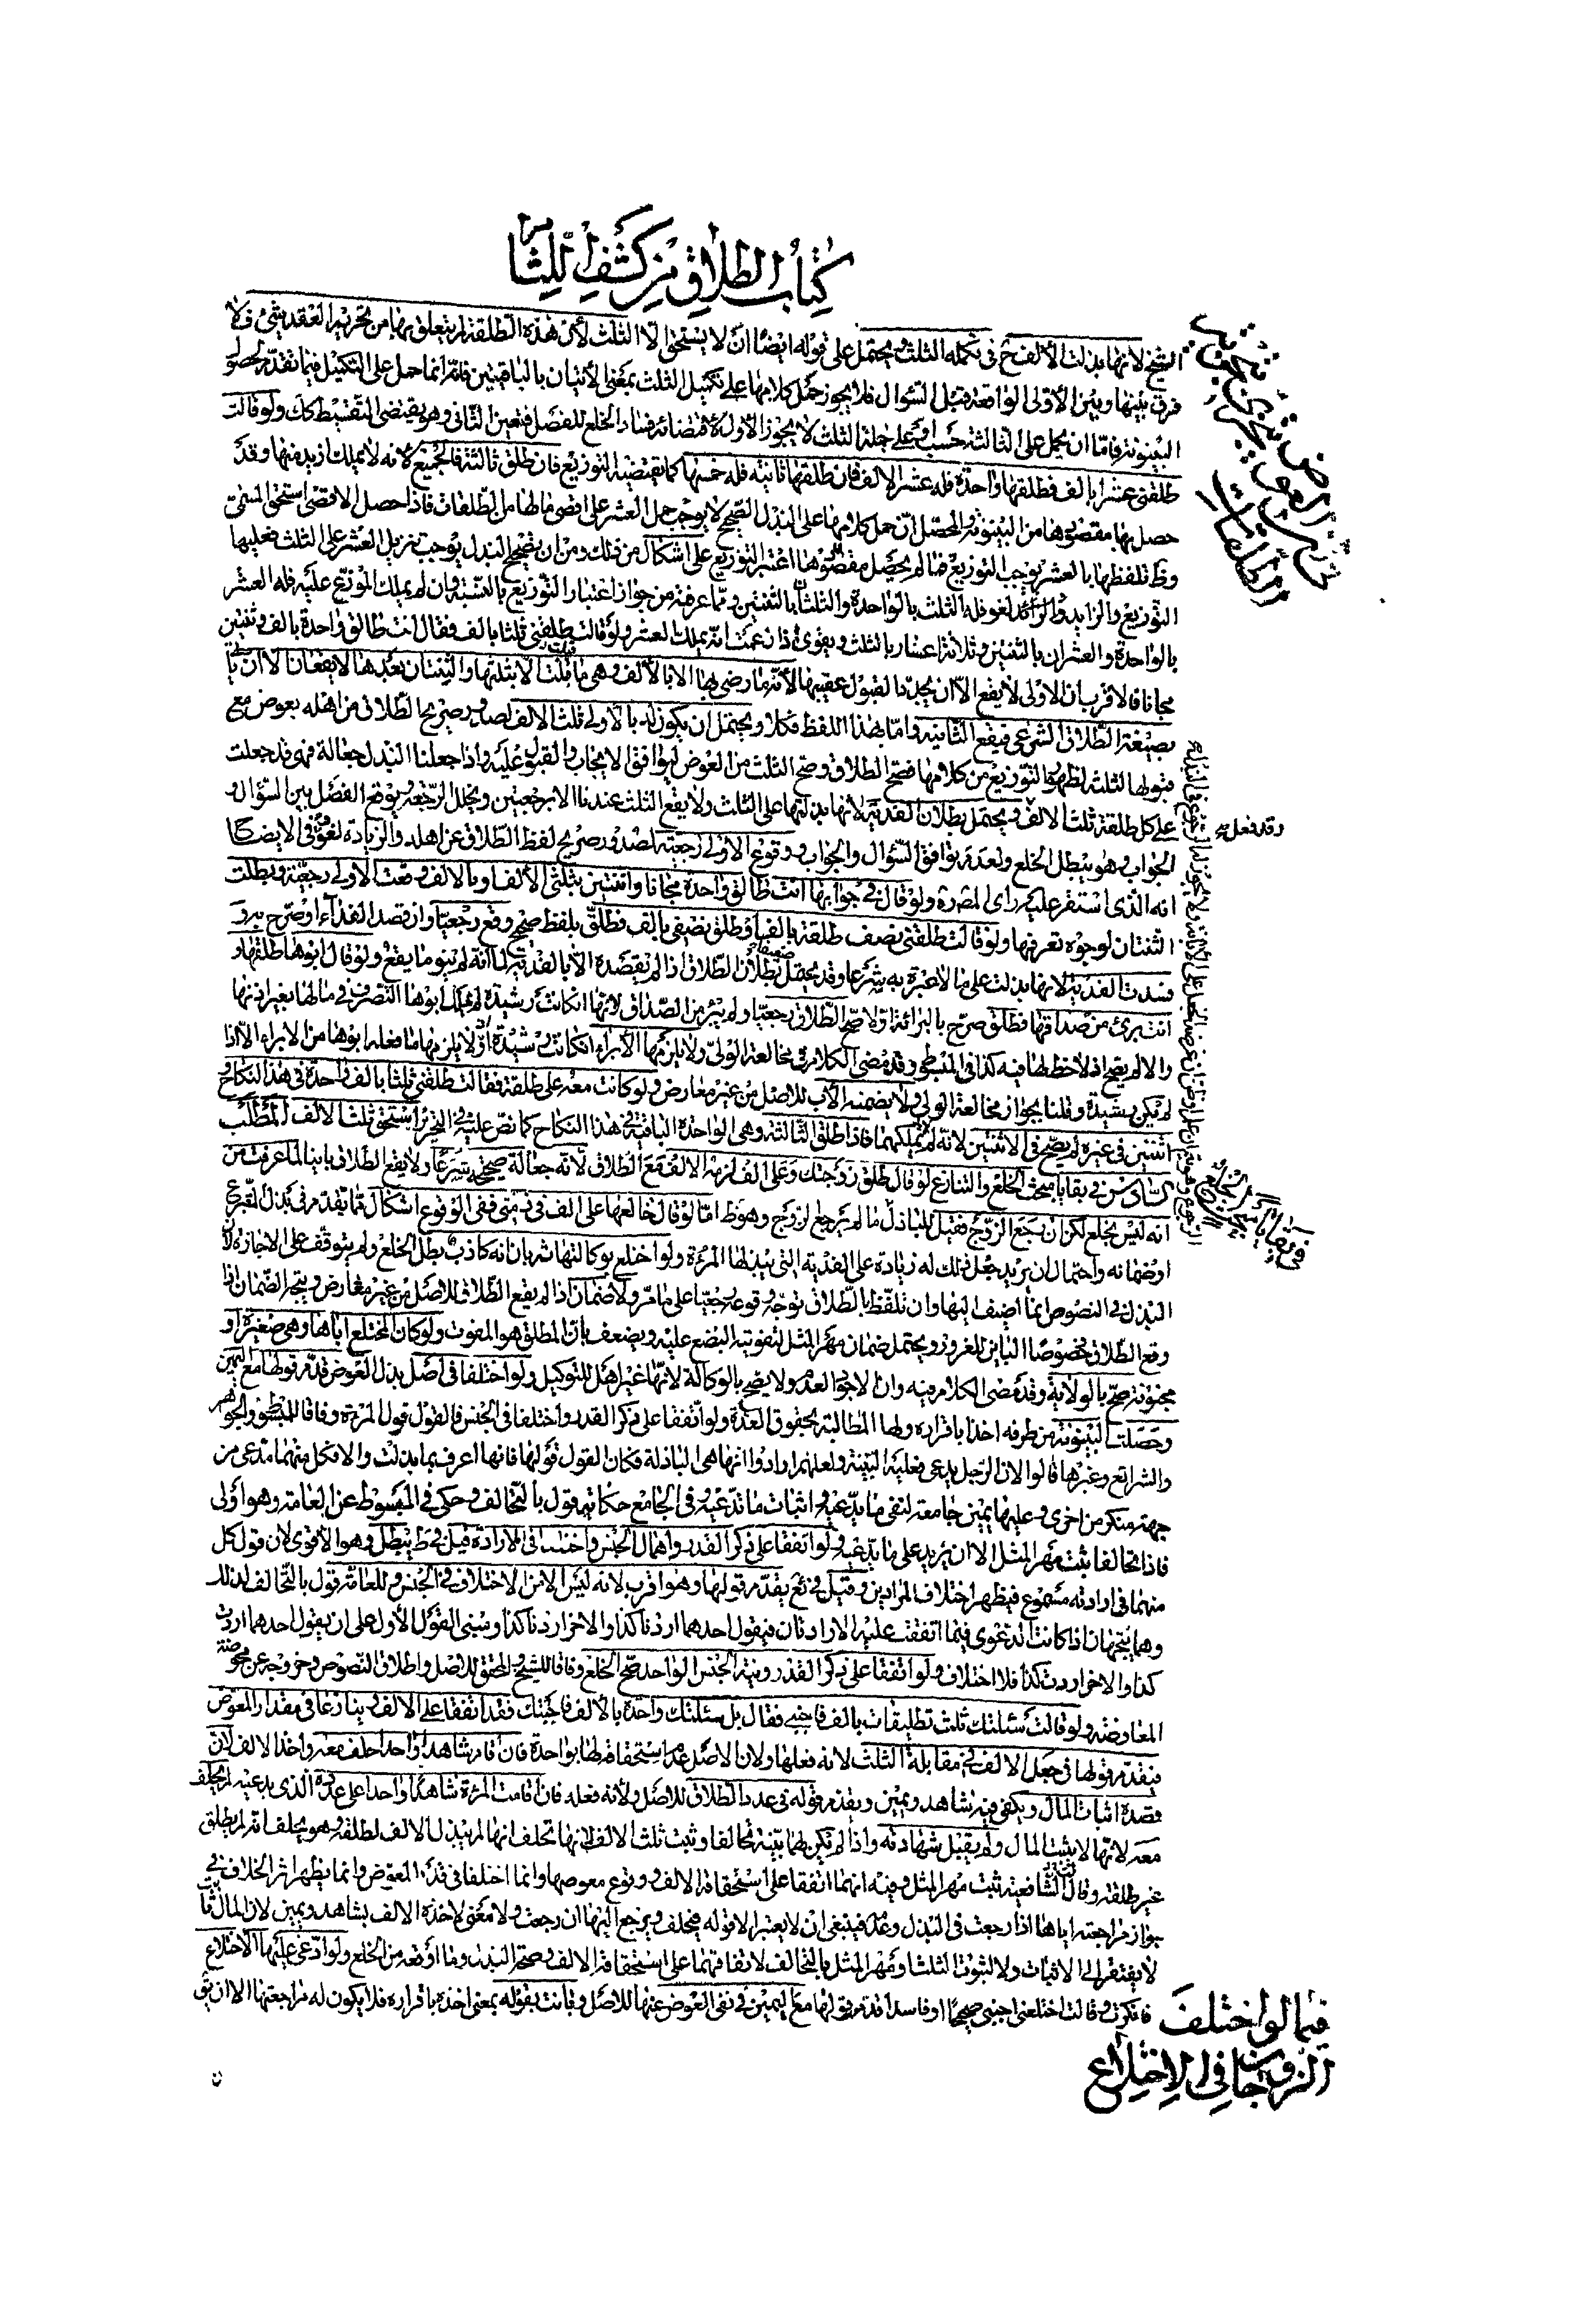 كتاب الطلاق من كشف اللثام
الشيخ لأنها بذلت الألف ح في تكملة الثلث ويحتمل على قوله ايضا ان لا يستحق الا الثلث لأن هذه الطلقة لم يتعلق بها من تحريم العقد شيء فلا
فرق بينها وبين الأولى الواقعة قبل السؤال فلا يجوز حمل كلامها على تكميل الثلث بمعنى الأتيان بالباقيتين فانه انما حمل على التكميل فيما تقدم لحصول
البينونة فاما ان يحمل على الثالثة حسب او على جملة الثلث لا يجوز الأول لاقتضائه فساد الخلع للفصل فتعين الثاني وهو يقتضي التقسيط كك ولو قالت
طلقني عشرا بالف فطلقها واحدة فله عشر الالف فان طلقها ثانية فله خمسها كما يقتضيه التوزيع فان طلق ثالثة فالجميع لانه لا يملك ازيد منها وقد
حصل بها مقصودها من البينونة والمحصل ان حمل كلامها على البذل الصحيح لا يوجب حمل العشر على اقصى مالها من الطلقات فاذا حصل الاقصى استحق المسمى
وظ تلفظها بالعشر يوجب التوزيع فما لم يحصل مقصودها اعتبر التوزيع على اشكال من ذلك ومن ان تصحيح البذل يوجب تنزيل العشر على الثلث فعليها
التوزيع والزايد لغو فله الثلث بالواحدة والثلثان بالثنتين ومما عرفت من جواز اعتبار التوزيع بالنسبة وان لم يملك الموزع عليه فله العشر
بالواحدة والعشران بالثنتين وثلاثة اعشار بالثلث ويقوى اذا زعمت انه يملك العشر ولو قالت طلقني ثلثا بالف فقال انت طالق واحدة بالف وثنتين
مجانا فالاقرب ان الاولى لا يقع الا ان يجدد القبول عقيبها لأنه ما رضي بها الا بالألف وهي ما بذلت الا ثلثها والثنتان بعدها لا يقعان الا ان ياتي
بصيغة الطلاق الشرعي فيقع الثانية واما بهذا اللفظ فكلا ويحتمل ان يكون له بالاولى ثلث الالف لصدور صريح الطلاق من اهله بعوض مع
قبولها الثلث لظهور التوزيع من كلامها فصح الطلاق وصح الثلث من العوض لتوافق الايجاب والقبول عليه واذا جعلنا البذل جعالة فهي قد جعلت
على كل طلقة ثلث الالف ويحتمل بطلان الفدية لانها بذلتها على الثلث ولا يقع الثلث عندنا الا برجعتين وتخلل الرجعة يوقع الفصل بين السؤال و
الجواب وهو يبطل الخلع ولعدم توافق السؤال والجواب ووقوع الاولى رجعية لصدور صريح لفظ الطلاق عن اهله والزيادة لغو وفي الايضاح
انه الذي استقر عليه راي المص ره ولو قال في جوابها انت طالق واحدة مجانا واثنتين بثلثي الألف او بالالف وقعت الأولى رجعية وبطلت
الثنتان لوجوه تعرفها ولو قالت طلقني نصف طلقة بالف او طلق نصفي بالف فطلق بلفظ صحيح وقع رجعيا وان قصد الفداء او صرح به و
فسدت الفدية لانها بذلت على ما لا عبرة به شرعا وقد يحتمل بطلان الطلاق اذا لم يقصده الا بالفدية لما انه لم ينو ما يقع ولو قال ابوها طلقها و
انت بريء من صداقها فطلق صرح بالبرائة اولا صح الطلاق رجعيا ولم يبرء من الصداق لانها ان كانت رشيدة لم يملك ابوها التصرف في مالها بغير اذنها
والا لم يصح اذ لا حظ لها فيه كذا في المبسوط وقد مضى الكلام في مخالعة الولي ولا يلزمها الأبراء ان كانت رشيدة اذ لا يلزمها ما فعله ابوها من الابراء الا اذا
لم تكن رشيدة وقلنا بجواز مخالعة الولي ولا يضمنه الأب للاصل من غير معارض ولو كانت معه على طلقة فقالت طلقني ثلثا بالف واحدة في هذا النكاح و
اثنتين في غيره لم يصح في الاثنتين لانه لم يملكهما فاذا طلق الثالثة وهي الواحدة الباقية في هذا النكاح كما نص عليه في التحرير استحق ثلث الألف المطلب
السادس في بقايا مبحث الخلع والتنازع لو قال طلق زوجتك وعلي الف لزمه الالف مع الطلاق لأنه جعالة صحيحة شرعا ولا يقع الطلاق باينا لما عرفت من
انه ليس بخلع لكن ان رجع الزوج فقيل للباذل ما لم يرجع الزوج وهو ظ اما لو قال خالعها على الف في ذمتي ففي الوقوع اشكال مما تقدم في بذل المتبرع
او ضمانه واحتمال ان يريد جعل ذلك له زيادة على الفدية التي يبذلها المرءة ولو اختلع بوكالتها ثم بان انه كاذب بطل الخلع ولم يتوقف على الاجازة لأن
البذل في النصوص انما اضيف اليها وان تلفظ بالطلاق توجه وقوعه رجعيا على ما مر ولا ضمان اذا لم يقع الطلاق للاصل من غير معارض ويتجه الضمان اذا
وقع الطلاق خصوصا البائن للغرور ويحتمل ضمان مهر المثل لتفويته البضع عليه ويضعف بان المطلق هو المفوت ولو كان المختلع اباها وهي صغيرة او
مجنونة صح بالولاية وقد مضى الكلام فيه وان لا جوى العدم ولا يصح بالوكالة لانها غير اهل للتوكيل ولو اختلفا في اصل بذل العوض قدم قولها مع اليمين
وحصلت البينونة من طرفه اخذا باقراره ولها المطالبة بحقوق العدة ولو اتفقا على ذكر القدر واختلفا في الجنس فالقول قول المرءة وفاقا للمبسوط والجواهر
والشرائع وغيرها قالوا لان الرجل يدعي فعليه البينة ولعلهم ارادوا انها هي الباذلة فكان القول قولها فانها اعرف بما بذلت والا فكل منهما مدعى من
جهة منكر من اخرى وعليها يمين جامعة لنفي ما يدعيه واثبات ما تدعيه وفي الجامع حكاية قول بالتحالف وحكى في المبسوط عن العامة وهو اولى
فاذا تحالفا ثبت مهر المثل الا ان يزيد على ما يدعيه ولو اتفقا على ذكر القدر واهمال الجنس واختلفا في الارادة قيل في ط يبطل وهو الاقوى لان قول كل
منهما في ارادته مسموع فيظهر اختلاف المرادين وقيل في يع يقدم قولها وهو اقرب لانه ليس الا من الاختلاف في الجنس وللعامة قول بالتحالف لذلك
وهما يتجهان اذا كانت الدعوى فيما اتفقت عليه الارادتان فيقول احدهما اردنا كذا والاخر اردنا كذا ويبنى القول الأول على ان يقول احدهما اردت
كذا والاخر اردت كذا فلا اختلاف ولو اتفقا على ذكر القدر ونية الجنس الواحد صح الخلع وفاقا للشيخ والمحقق للاصل واطلاق النصوص وخروجه عن محوضة
المعاوضة ولو قالت سئلتك ثلث تطليقات بالف فاجبني فقال بل سئلتك واحدة بالألف فاجبتك فقد اتفقا على الالف وتنازعا في مقدار المعوض
فيقدم قولها في جعل الالف في مقابلة الثلث لانه فعلها ولان الاصل عدم استحقاقه لها بواحدة فان اقام شاهدا واحدا حلف معه واخذ الالف لان
قصده اثبات المال ويكفي فيه شاهد ويمين ويقدم قوله في عدد الطلاق للاصل ولأنه فعله فان اقامت المرءة شاهدا واحدا على عدده الذي يدعيه لم يحلف
معه لانها لا يثبت المال ولم يقبل شهادته واذا لم تكن لهما بينة تحالفا وثبت ثلث الالف لانها تحلف انها لم تبذل الالف لطلقة وهو يحلف انه لم يطلق
غير طلقة وقال الشافعية ثبت مهر المثل وفيه انهما اتفقا على استحقاقه الالف ووقوع معوضها وانما اختلفا في قدر المعوض وانما يظهر اثر الخلاف في
جواز مراجعته اياها اذا رجعت في البذل وعدمه فينبغي ان لا يعتبر الا قوله فيحلف ويرجع اليها ان رجعت ولا معنى لاخذه الالف بشاهد ويمين لان المال ثابت
لا يفتقر الى الاثبات ولا لثبوت الثلث او مهر المثل بالتحالف لاتفاقهما على استحقاقه الالف وصحة البذل وما اوقعه من الخلع ولو ادعى عليها الاختلاع
فانكرت وقالت اختلعني اجنبي صحيحا او فاسدا قدم قولها مع اليمين في نفي العوض عنها للاصل وبانت بقوله بمعنى اخذه باقراره فلا يكون له مراجعتها الا ان يتق
وقد فعل
فيما لو اختلف
الزوجان في الاختلاع